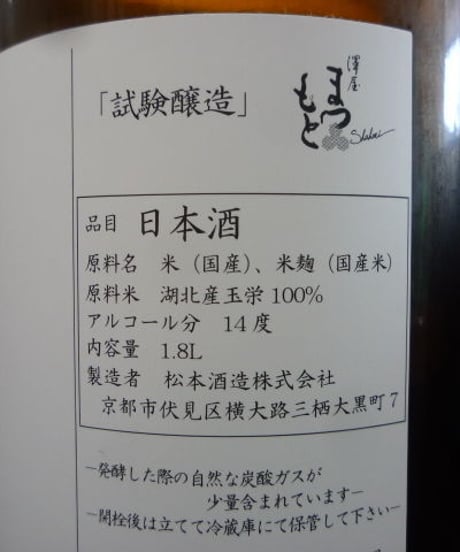 「試験醸造」
澤屋
まつもと
Shuhari
品目 日本酒
原料名 米（国産）、米麹（国産米）
原料米 湖北産玉栄100%
アルコール分 14度
内容量 1.8L
製造者 松本酒造株式会社
京都市伏見区横大路三栖大黒町7
−発酵した際の自然な炭酸ガスが
少量含まれています−
−開栓後は立てて冷蔵庫にて保管して下さい−